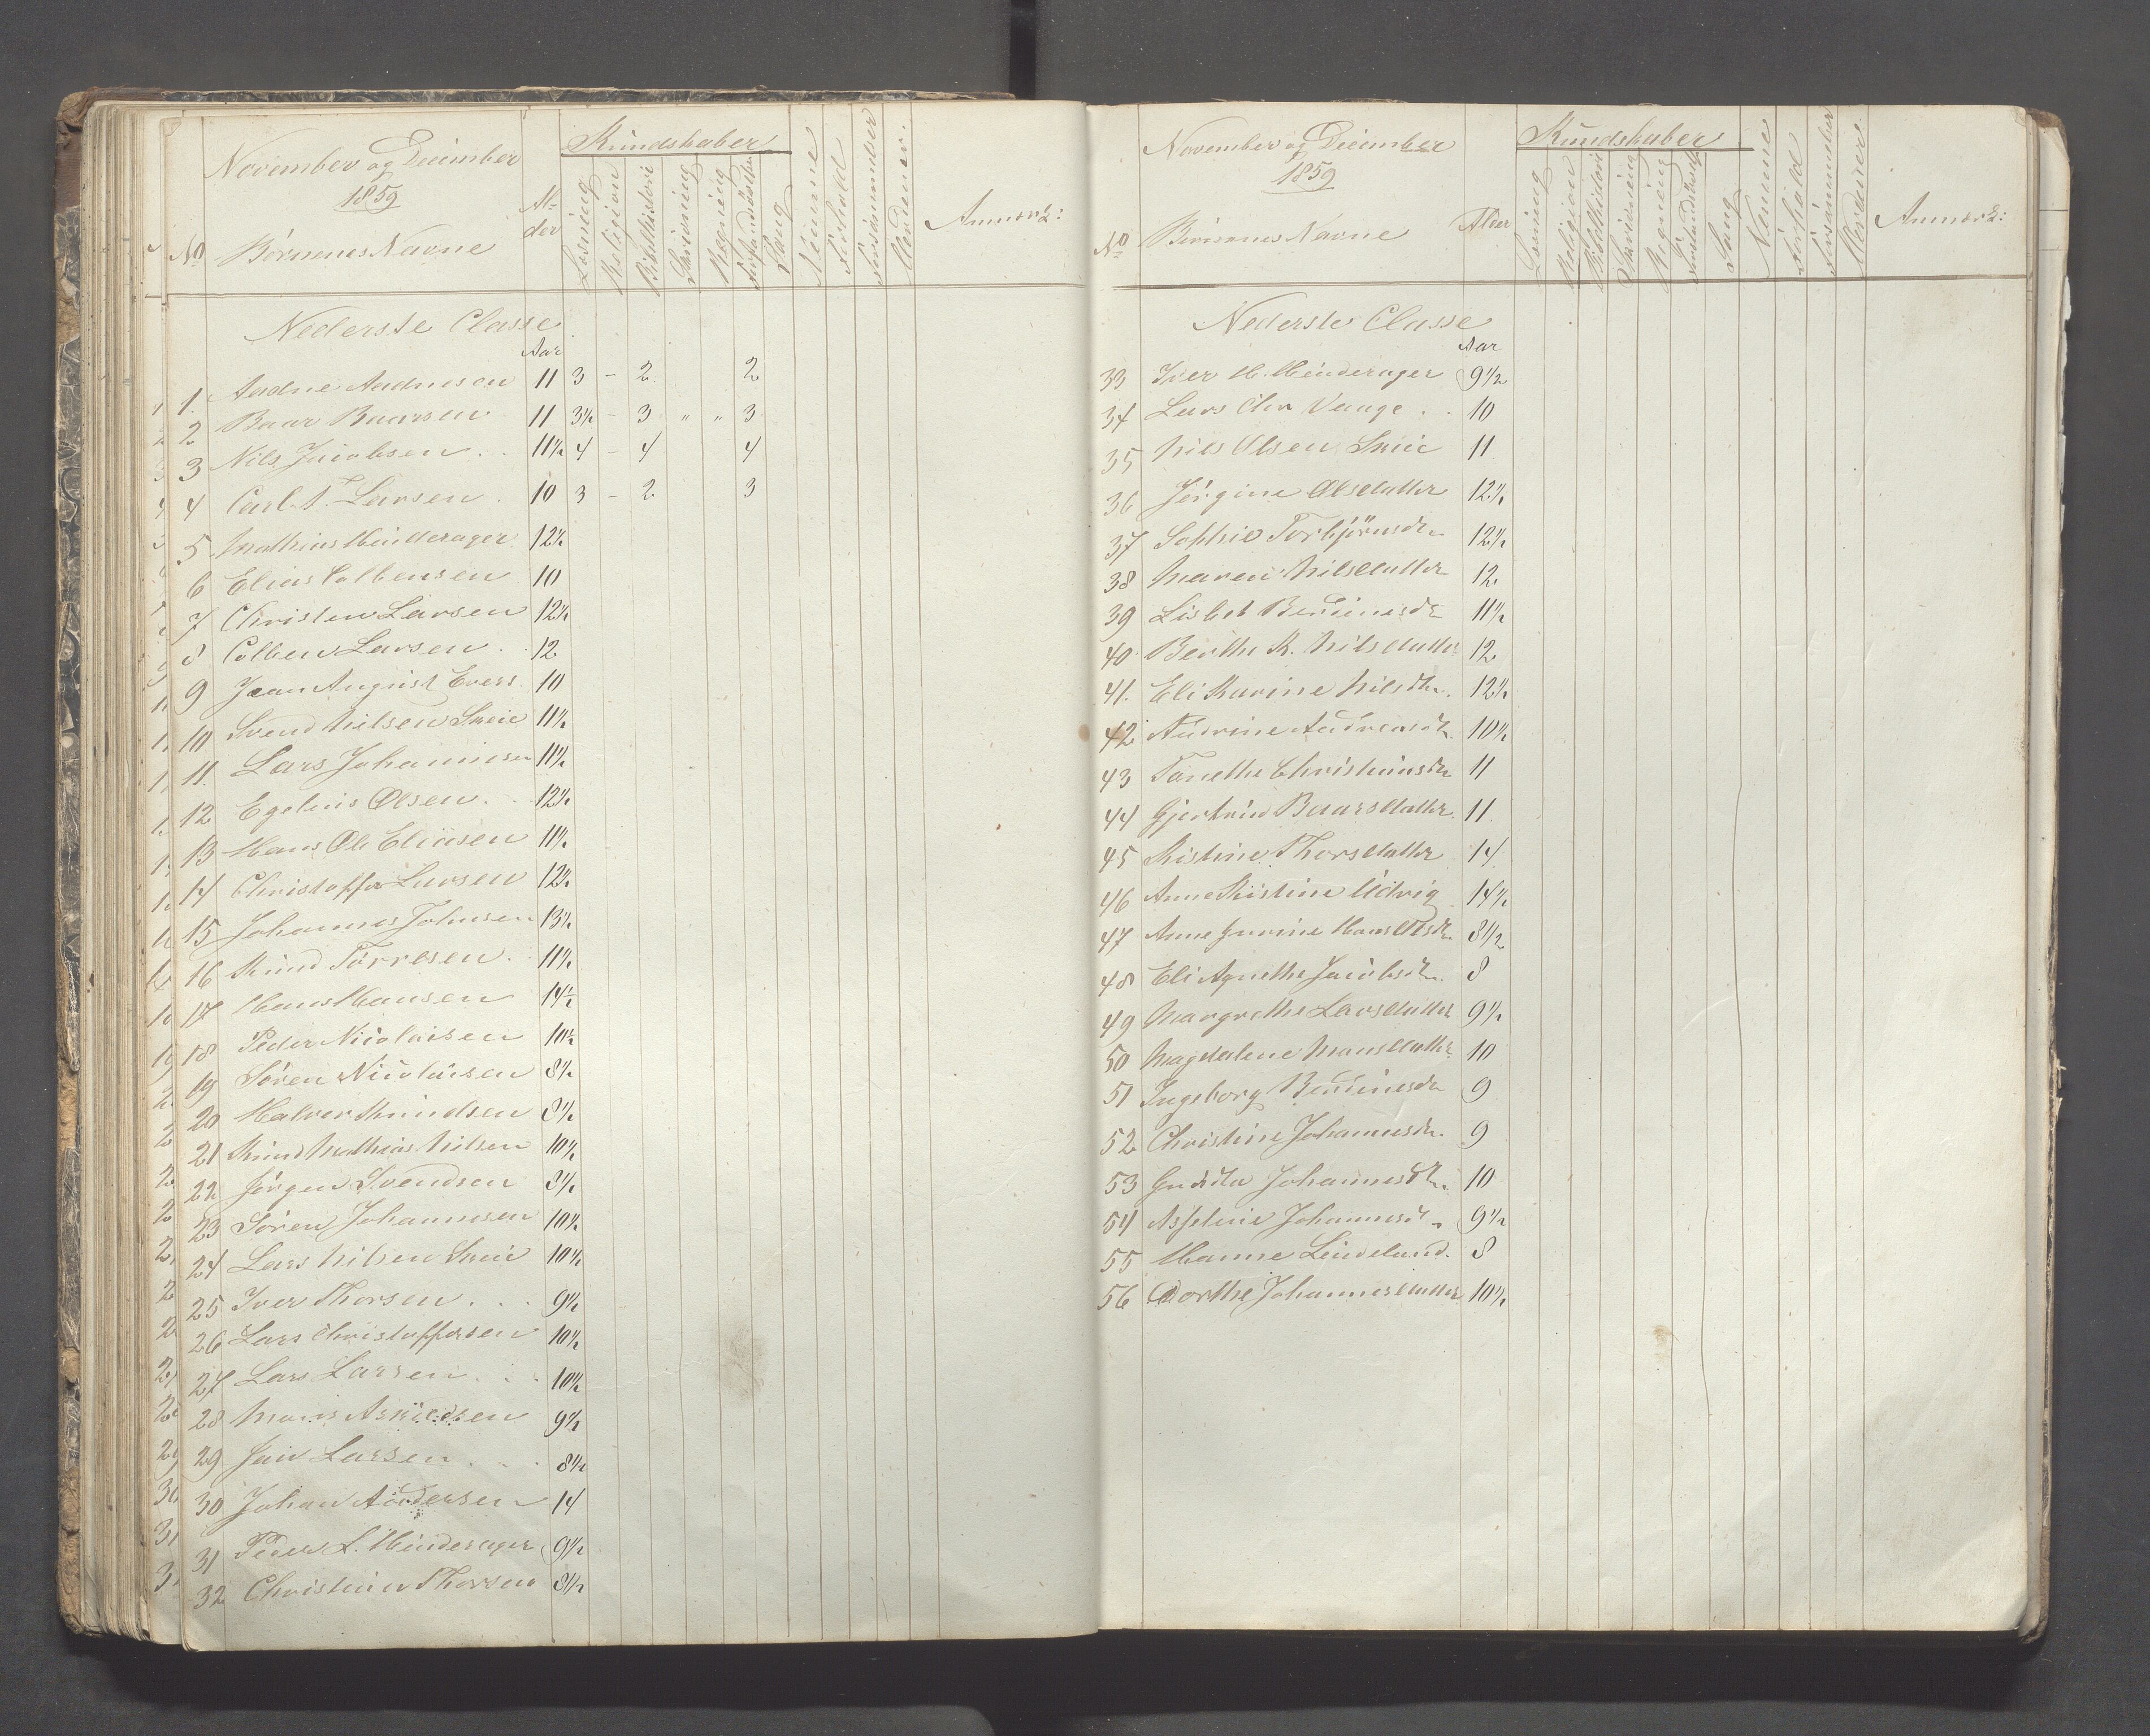 November og December
1859
No Börnenes Navne Al-
der
Kundskaber
Læsning Religion Bibelhistorie Skrivning Regning Forstandsøvelser Sang Nemme Forhold Forsømmelser Nærværer. Anmærk:
Nederste Classe
Aar
1. Aadne Aadnesen 11 3 - 2 2
2 Baar Baarsen 11 3½ - 3 " " 3
3 Nils Jacobsen . . 11½ 4 - 4 4
4 Carl T. Larsen . 10 3 - 2 3
5 Mathias Hinderager 12½
6 Elias Colbensen 10
7 Christen Larsen 12½
8 Colben Larsen . . 12
9 Jean August Evers 10
10 Svend Nilsen Sveie 11½
11. Lars Johannesen 11½
12 Egelius Olsen . . 12½
13 Hans Ole Eliasen 11½
14 Christoffer Larsen 12½
15 Johannes Johnsen 13½
16 Knud Torresen . 11½
17 Hans Hansen 14½
18 Peder Nicolaisen 10½
19 Sören Nicolaisen 8½
20 Halvor Knudsen 8½
21 Knud Mathias Nilsen 10½
22 Jörgen Svendsen 8½
23 Sören Johannesen 10½
24 Lars Nilsen Sveie 10½
25 Iver Thorsen . . . 9½
26 Lars Christoffersen 10½
27 Lars Larsen . . . 10½
28 Mons Askildsen 9½
29 Jan Larsen . . . 8½
30 Johan Andersen 14
31 Peder L. Hinderager 9½
32 Christian Thorsen 8½
November og December
1859
No Börnenes Navne Alder
Kundskaber
Læsning Religion Bibelhistorie Skrivning Regning Forstandsøvelser Sang Nemme Forhold Forsømmelser Nærværer Anmærk:
Nederste Classe
Aar
33 Iver H. Hinderager 9½
34 Lars Chr Vaage . . 10
35 Nils Olsen Sveie 11
36 Jörgine Olsdatter 12½
37 Sophie Torbjörnsdr 12½
38 Maren Nilsdatter 12
39 Lisbet Bendinesdr 11½
40 Berthe K. Nilsdatter 12
41. Eli Karine Nilsdtr. 12½
42 Andrine Andreasdr. 10½
43 Tonethe Christiansdtr 11
44 Gjertrud Baarsdatter. 11.
45 Kistine Thorsdatter 14
46 Anne Kistine Udvig 14½
47 Anne Gurine Hans Olsdtr 8½
48 Eli Agnethe Jacobsdtr. 8
49 Margrethe Larsdatter 9½
50 Magdalene Monsdatter 10
51 Ingeborg Bendinesdr 9
52 Christine Johannesdr. 9
53 Johannesdtr. 10
54 Asseline Johannesdtr 9½
55 Hanne Lindeland. 8
56 Dorthe Johannesdatter 10½